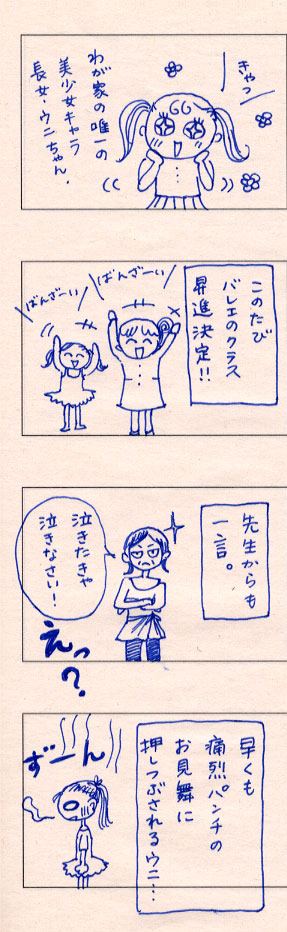 きゃっ
わが家の唯一の
美少女キャラ
長女・ウニちゃん.
このたび
バレエのクラス
昇進決定!!
ばんざーい
ばんざーい
先生からも
一言。
泣きたきゃ
泣きなさい!
えっ?
早くも
痛烈パンチの
お見舞に
押しつぶされるウニ…
ずーん